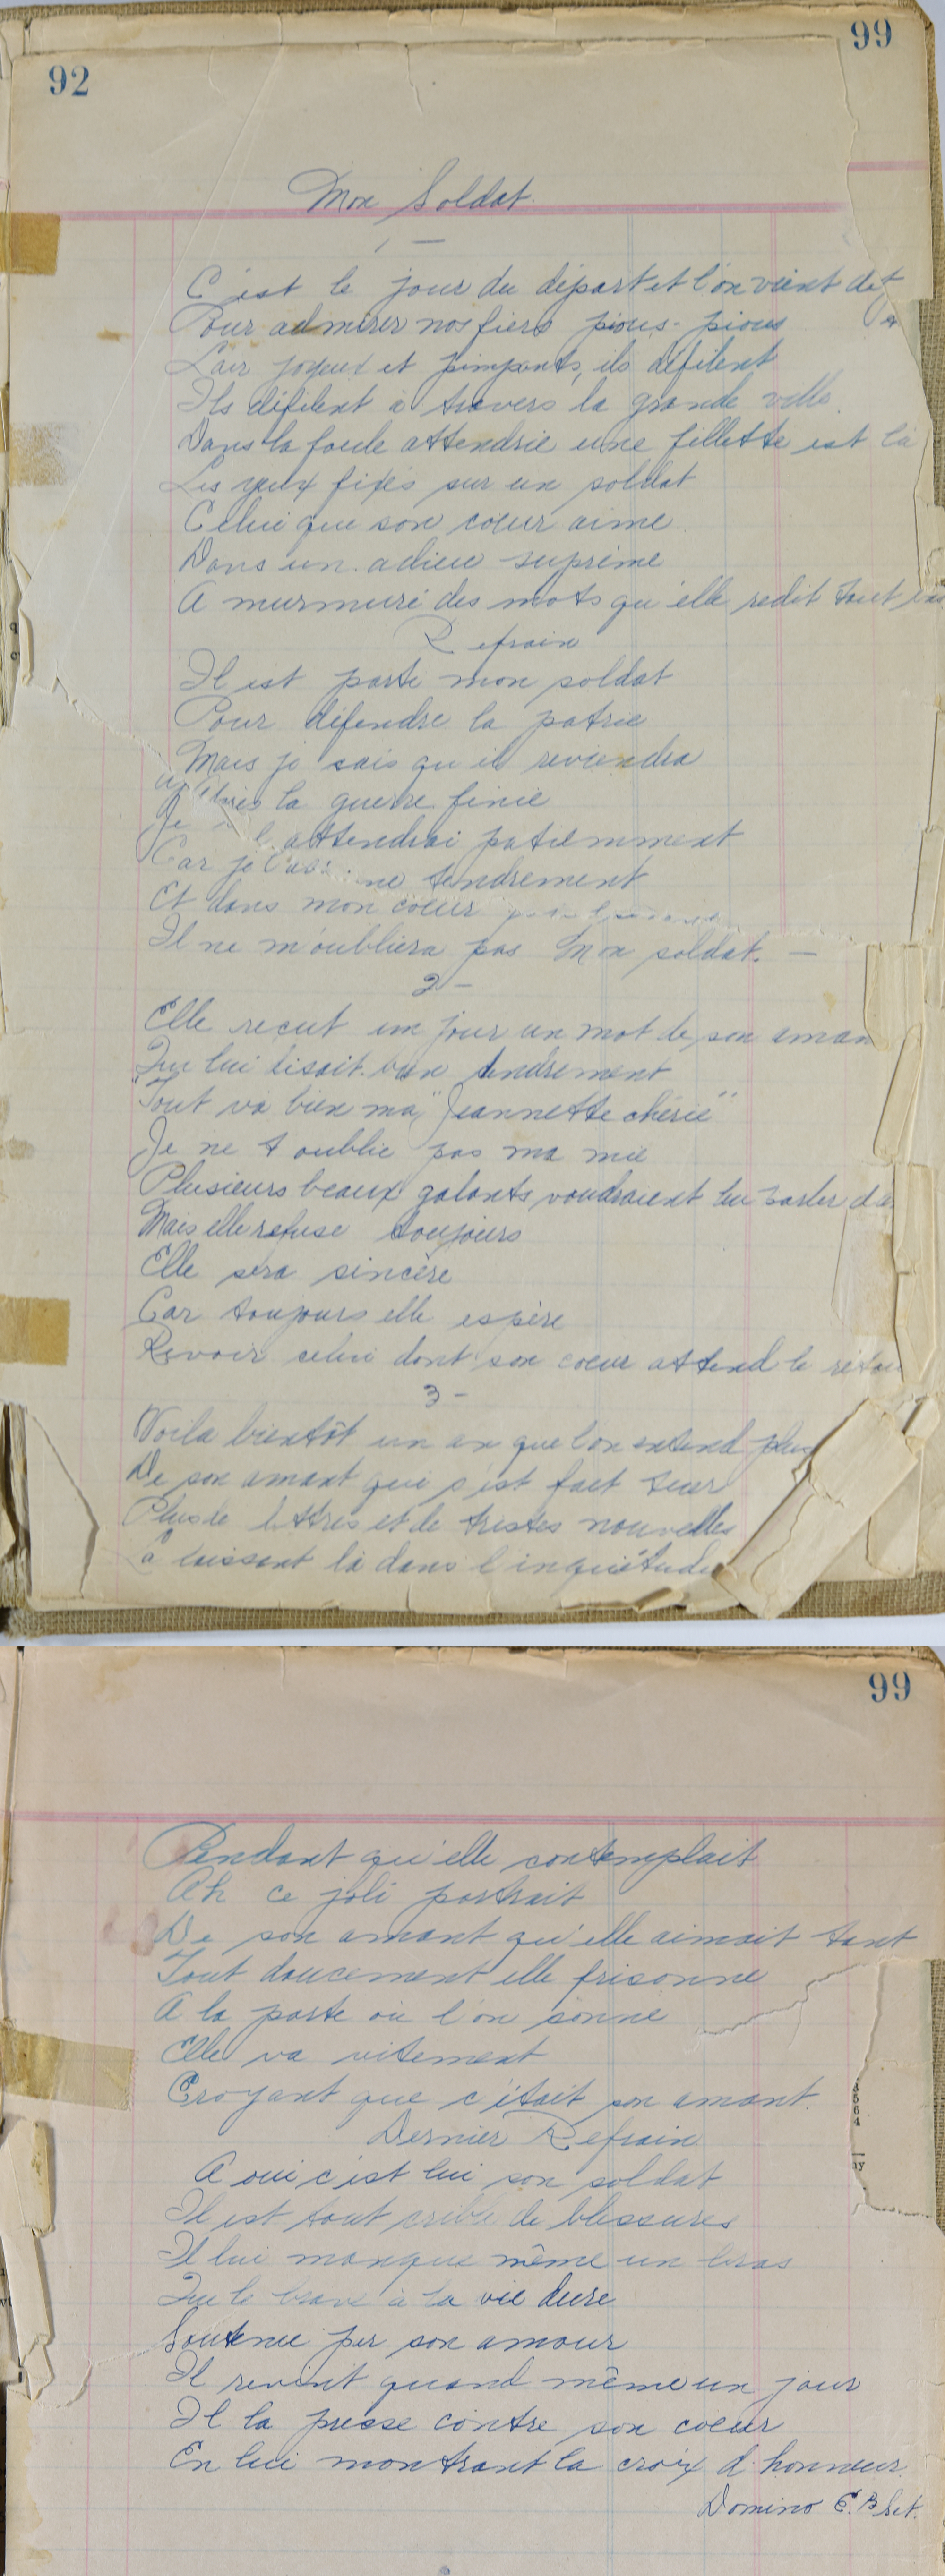 92
99
Mon Soldat.
1 —
C'est le jour du départ et l'on vient de
Pour admirer nos fiers pious-pious
L'air joyeux et pimpants, ils défilent
Ils défilent a travers la grande ville
Dans la foule attendrie une fillette est là
Les yeux fixés sur un soldat
Celui que son coeur aime
Dans un adieu suprème
A murmuré des mots qu'elle redit tout
Refrain
Il est parti mon soldat
Pour défendre la patrie
Mais je sais qu'il reviendra
la guerre finie
Je l'attendrai patiemment
Car je tendrement
Et dans mon coeur
Il ne m'oubliera pas Mon soldat. —
2 —
Elle recut un jour un mot de son aman
Qui lui disait bien tendrement
"Tout va bien ma "Jeannette chérie"
Je ne t'oublie pas ma mie
Plusieurs beaux galants voudraient lui parler d'a
Mais elle refuse toujours
Elle sera sincère
Car toujours elle espère
Revoir celui dont son coeur attend le retou
3 —
Voila bientôt un an que l'on entend plus
De son amant qui s'est fait tuer
Plus de lettres et de tristes nouvelles
laissent là dans l'inquiétude
99
Pendant qu'elle contemplait
Ah ce joli portrait
De son amant qu'elle aimait tant
Tout doucement elle frisonne
A la porte où l'on sonne
Elle va vitement
Croyant que c'était son amant.
Dernier Refrain
A oui c'est lui son soldat
Il est tout criblé de blessures
Il lui manque même un bras
Que le brave à la vie dure
Soutenu par son amour
Il revint quand même un jour
Il la presse contre son coeur
En lui montrant la croix d'honneur.
Domino E.B